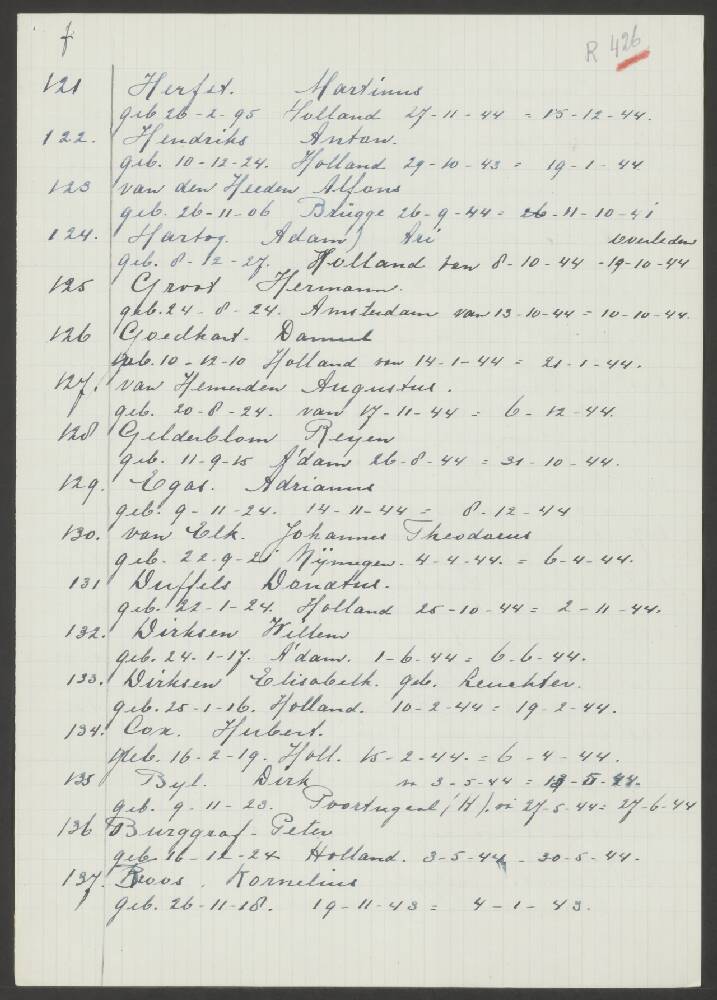 f
R 426
121 Herfst. Martinus
geb 26-2-95 Holland 27-11-44 = 15-12-44.
122. Hendriks Anton.
geb. 10-12-24. Holland 29-10-43 = 19-1-44
123 van den Heeden Alfons
geb. 26-11-06 Brügge 26-9-44 = 26-11-10-41
124. Hartog. Adam) Ari overleden
geb. 8-12-27. Holland van 8-10-44 - 19-10-44
125 Groot Hermann.
geb. 24-8-24. Amsterdam van 13-10-44 = 10-10-44.
126 Goedhart. Daniel
geb. 10-12-10 Holland van 14-1-44 = 21-1-44.
127. van Hemerden Augustus.
geb. 20-8-24. van 17-11-44 = 6-12-44.
128 Gelderblom Reyen
geb. 11-9-15 A'dam 26-8-44 = 31-10-44.
129. Egas. Adrianus
geb. 9-11-24. 14-11-44 = 8-12-44
130. van Elk. Johannes Theodorus
geb. 22-9-21 Nÿmegen. 4-4-44. = 6-4-44.
131 Duffels Donatus.
geb. 22-1-24. Holland 25-10-44 = 2-11-44.
132. Dirksen Willem
geb. 24-1-17. A'dam. 1-6-44 = 6-6-44.
133. Dirksen Elisabeth. geb. Leuchter.
geb. 25-1-16. Holland. 10-2-44 = 19-2-44.
134. Cox. Hubert.
geb. 16-2-19. Holl. 15-2-44. = 6-4-44.
135 Byl. Dirk 3-5-44 =
geb. 9-11-23. Poortugaal (H). 27-5-44 = 27-6-44
136 Burggraf. Peter
geb 16-12-24 Holland. 3-5-44 - 30-5-44.
137. Roos. Kornelius
geb. 26-11-18. 19-11-43 = 4-1-43.